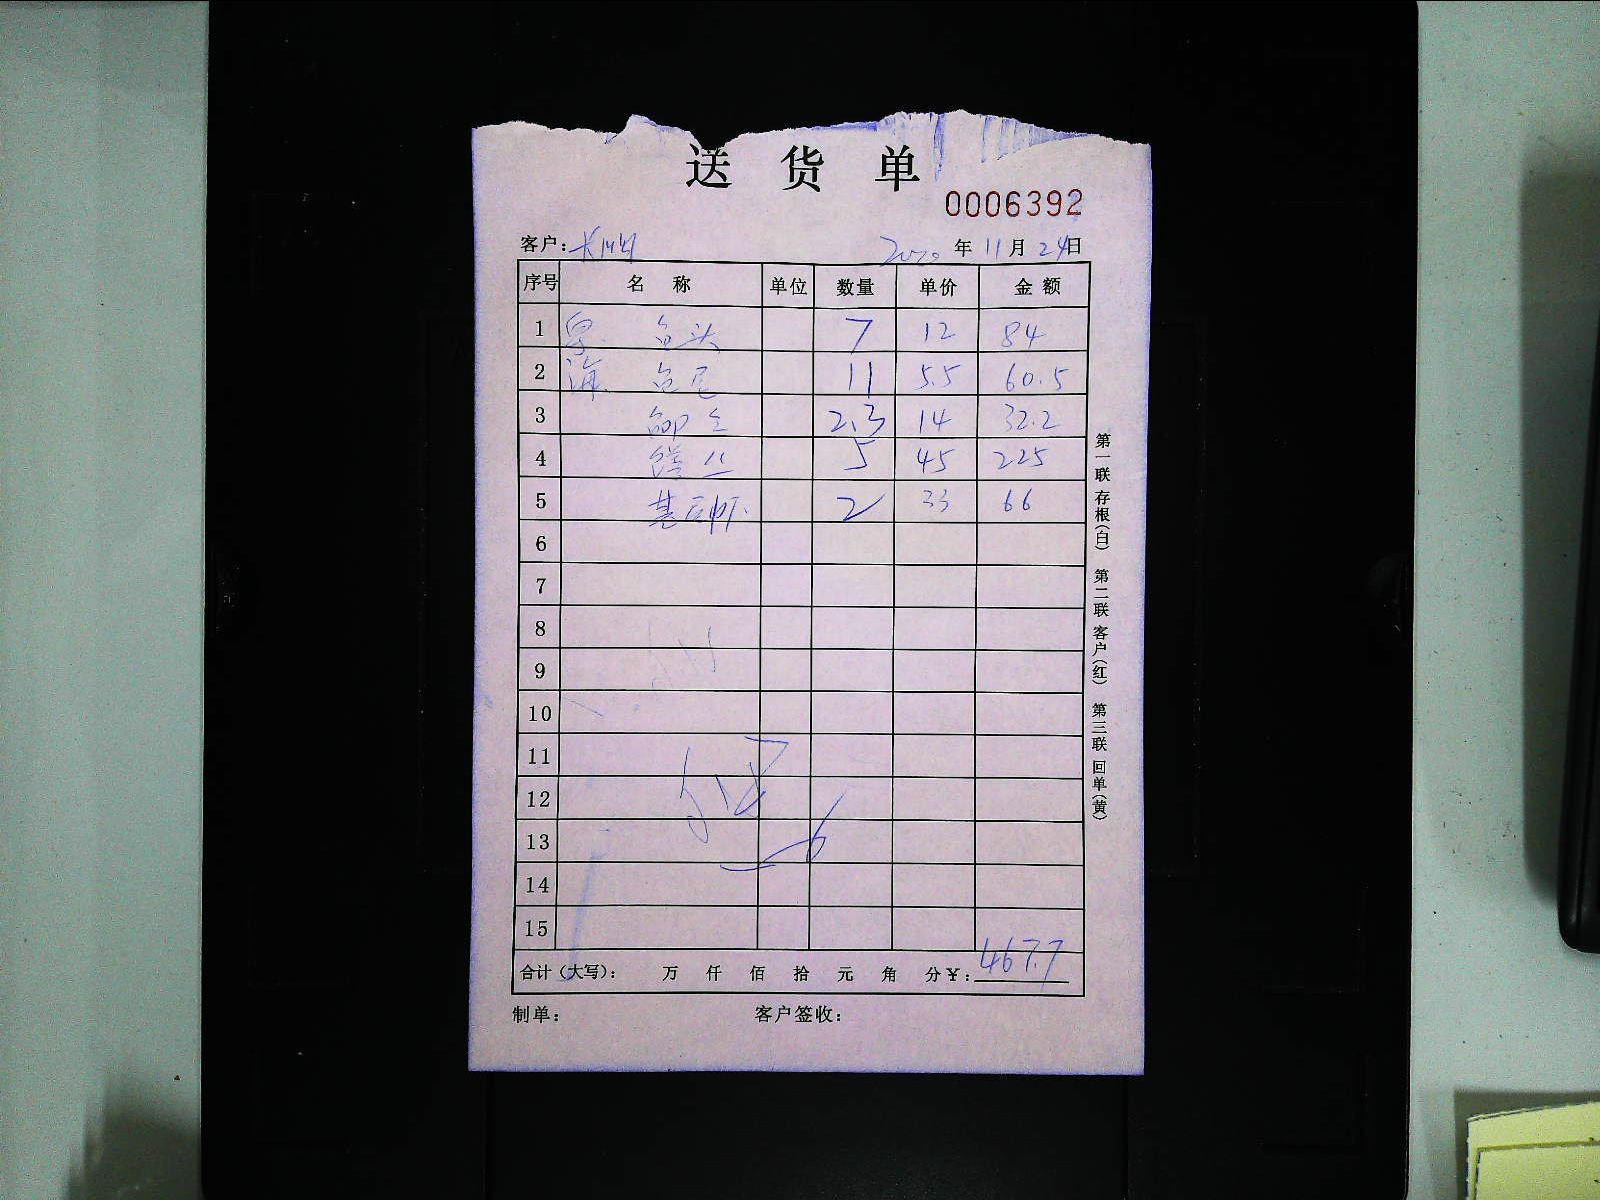 送 货 单
0006392
客户: 2020 年 11 月 24 日
序号 名 称 单位 数量 单价 金 额
1 鱼头 7 12 84
2 鱼尾 11 5.5 60.5
3 2.3 14 32.2
4 5 45 225
5 基 虾 2 33 66
6
7
8
9
10
11
12
13
14
15
合计(大写): 万 仟 佰 拾 元 角 分¥: 467.7
制单: 客户签收:
第一联 存根(白) 第二联 客户(红) 第三联 回单(黄)